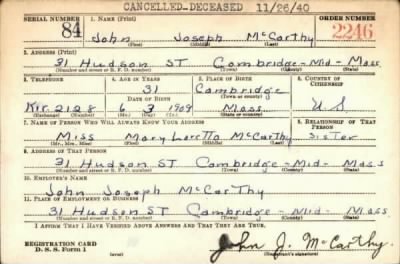 CANCELLED-DECEASED 11/26/40
SERIAL NUMBER 1. NAME (Print) ORDER NUMBER
84 John Joseph McCarthy 2246
(First) (Middle) (Last)
2. ADDRESS (Print)
31 Hudson ST Cambridge - Mid - Mass
(Number and street or R. F. D. number) (Town) (County) (State)
3. TELEPHONE 4. AGE IN YEARS 5. PLACE OF BIRTH 6. COUNTRY OF CITIZENSHIP
31 Cambridge
DATE OF BIRTH (Town or county)
Kir. 2128 6 3 1909 Mass. U S
(Exchange) (Number) (Mo.) (Day) (Yr.) (State or country)
7. NAME OF PERSON WHO WILL ALWAYS KNOW YOUR ADDRESS 8. RELATIONSHIP OF THAT PERSON
Miss Mary Loretto McCarthy Sister
(Mr., Mrs., Miss) (First) (Middle) (Last)
9. ADDRESS OF THAT PERSON
31 Hudson ST Cambridge - Mid - Mass
(Number and street or R. F. D. number) (Town) (County) (State)
10. EMPLOYER'S NAME
John Joseph McCarthy
11. PLACE OF EMPLOYMENT OR BUSINESS
31 Hudson ST Cambridge - Mid - Mass.
(Number and street or R. F. D. number) (Town) (County) (State)
I AFFIRM THAT I HAVE VERIFIED ABOVE ANSWERS AND THAT THEY ARE TRUE.
REGISTRATION CARD
D. S. S. Form 1 (over) John J. McCarthy.
(Registrant's signature)